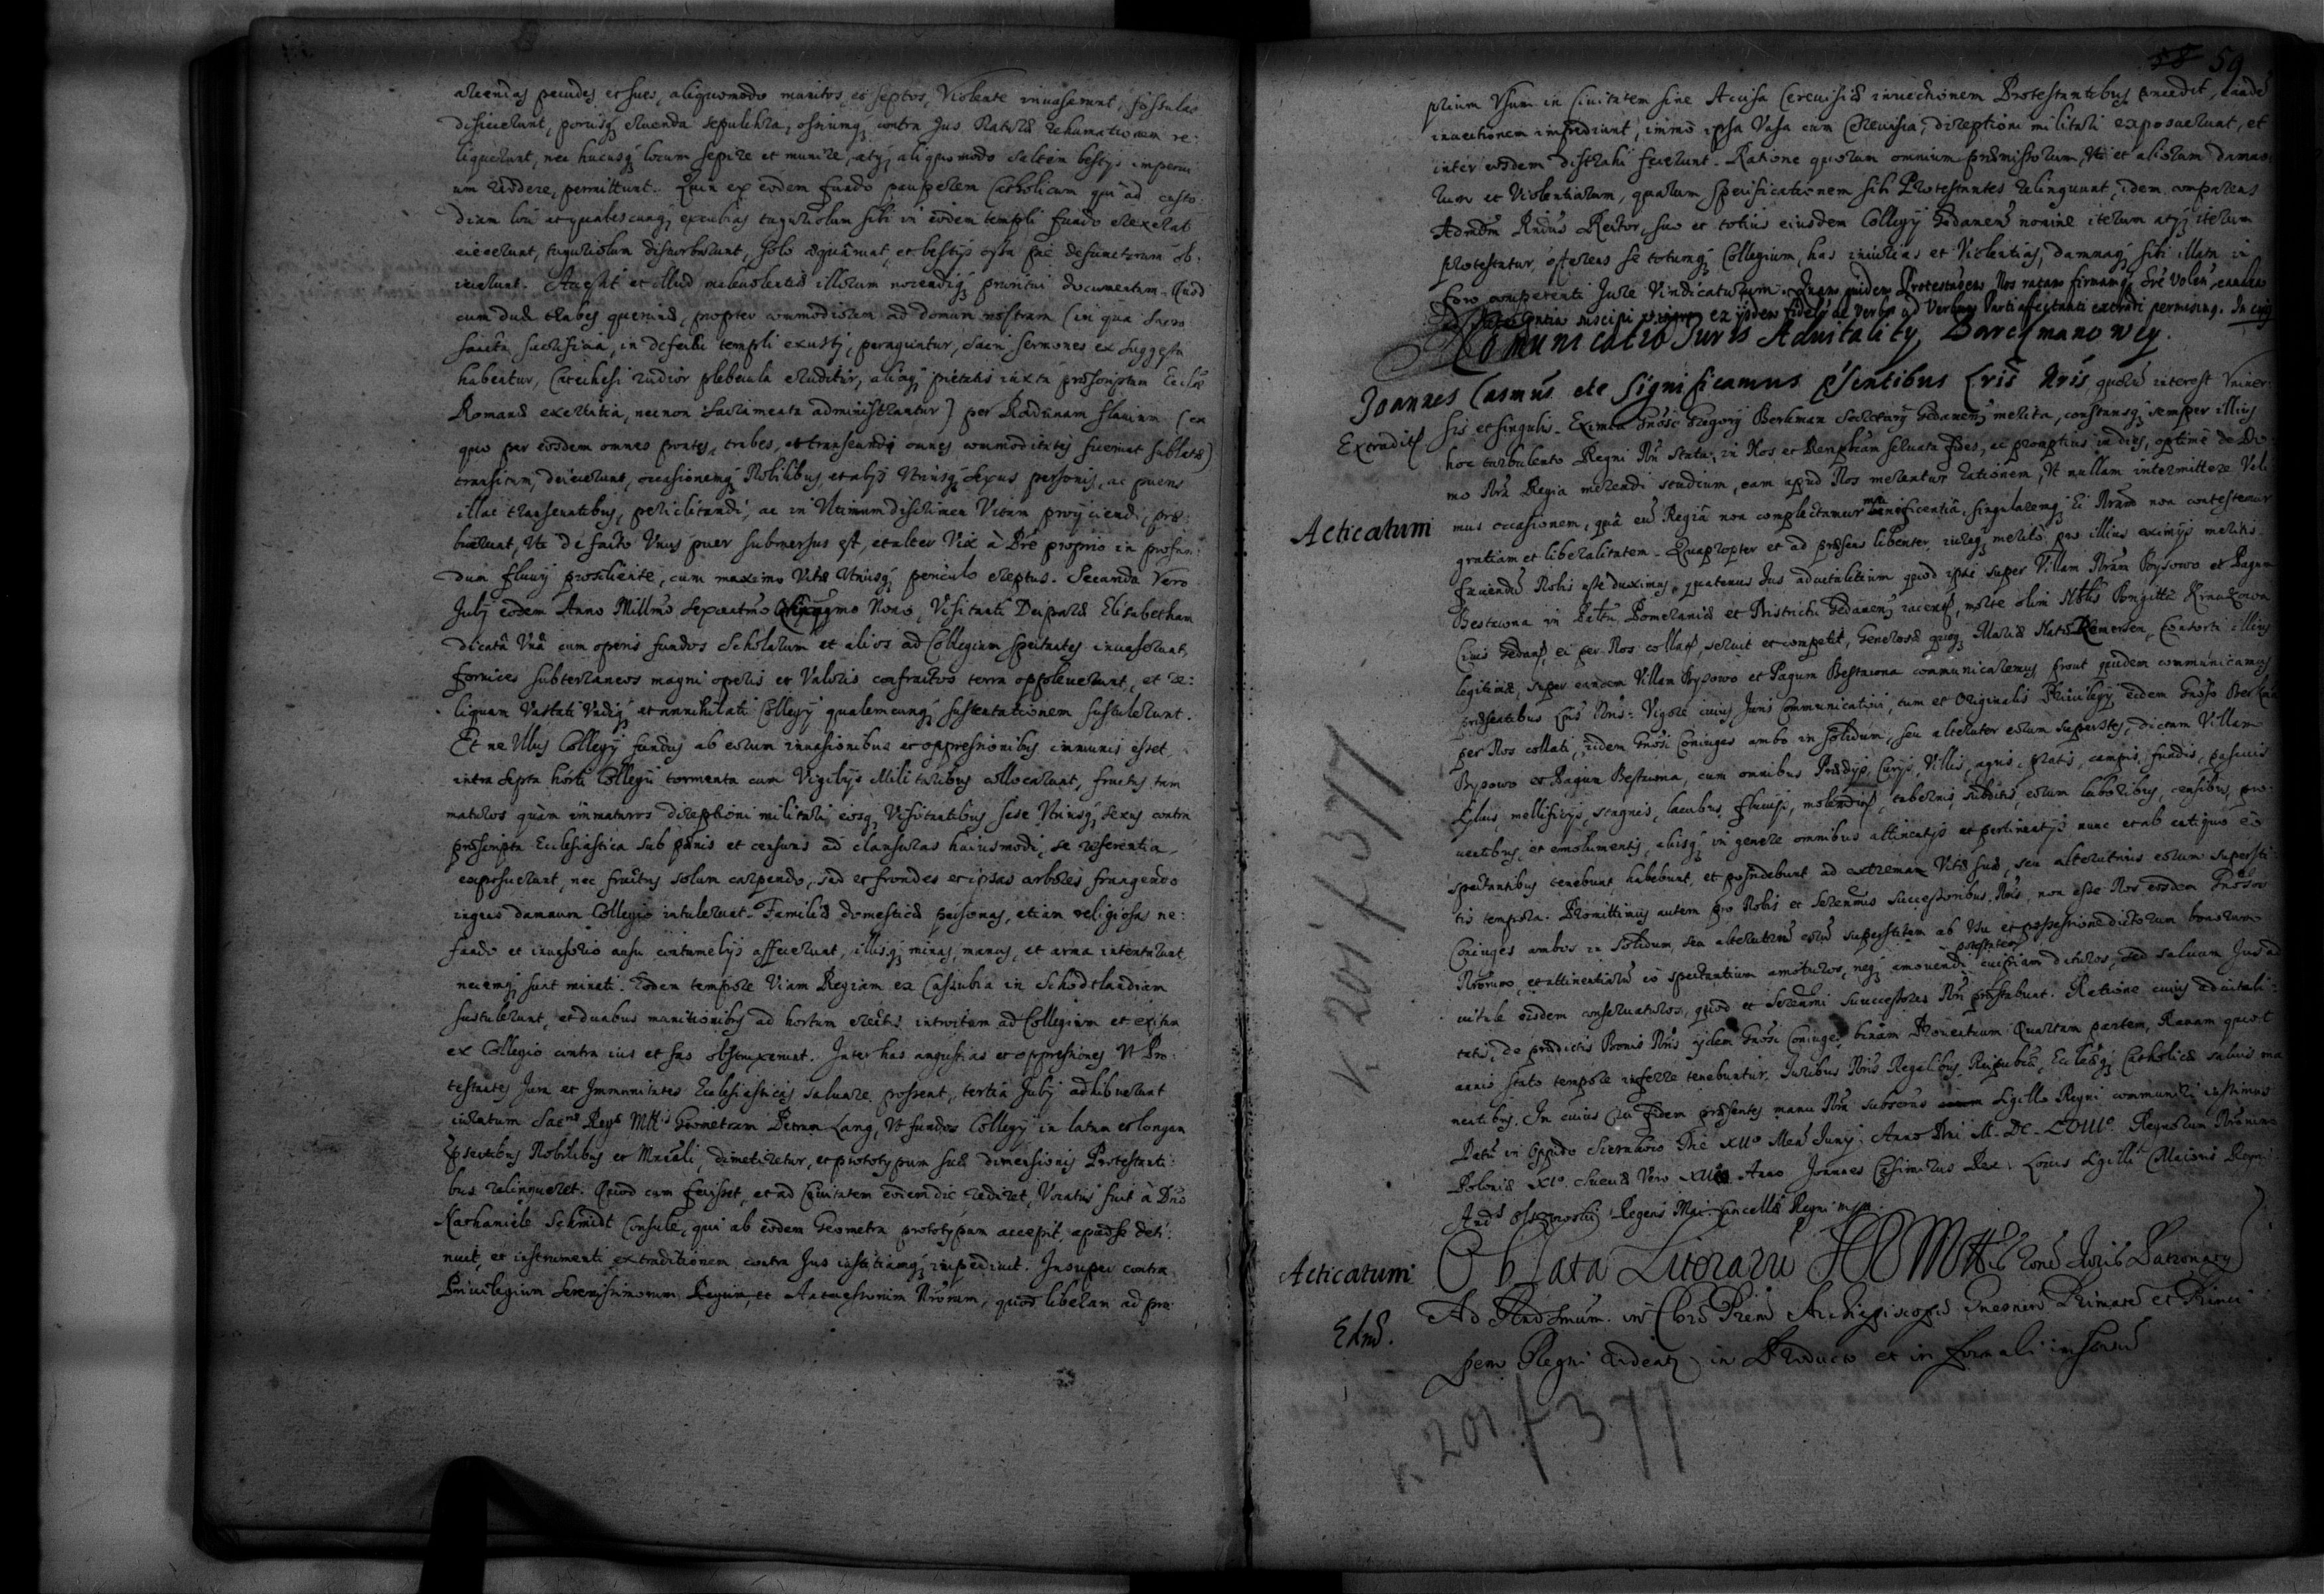 arcendas pecudes et sues, aliquomodo munitos et septos, Violente invaserunt, fossulas
disiecerunt, porcisq eruenda sepulchra, ossiumq contra Jus Naturæ exhumationem re-
liquerunt, nec hucusq locum sepire et munire, atq aliquomodo saltem bestijs impervi
um reddere, permittunt. Quin ex eodem fundo pauperem Catholicum qui ad custo-
diam loci et qualescunq excubias tuguriolum sibi in eodem templi fundo erexerat
eiecerunt, tuguriolum disturbarunt, solo æquârunt, et bestijs ossa piè defunctorum ob-
iecerunt. Accessit et illud malevolentiæ illorum nocendiq pruritui documentum. Quod
cum duæ trabes querneæ, propter commodiorem ad domum nostram (in qua sacro
sancta sacrificia, in defectu templi exusti, peraguntur, sacri sermones ex suggestu
habentur, Catechesi rudior plebecula eruditur, aliaq pietatis iuxta præscriptum Eccl
Romanæ exercitia, necnon Sacramenta administrantur) per Radunam fluvium (ex
quo per eosdem omnes pontes, trabes, et transeundi omnes commoditates fuerunt sublatæ)
transitum, deiecerunt, occasionemq Nobilibus, et alijs Utriusq Sexus personis, ac pueris
illac transeuntibus, periclitandi, ac in Ultimum discrimen Vitam proijciendi, præ-
buerunt, Uti de facto Unus puer submersus est, et alter Vix à Pre proprio in profun-
dum fluvij prosiliente, cum maximo Vitæ Utriusq periculo ereptus. Secunda Vero
July eodem Anno Millmo Sexcentmo Nono, Visitanti Deiparæ Elisabetham
dicatâ Unâ cum operis fundos Scholarum et alios ad Collegium spectantes invaserunt,
fornices subterraneos magni operis et Valoris confractos terra oppleverunt, et re-
liquam Vastati Undiq et annihilati Collegij qualemcunq sustentationem sustulerunt.
Et ne Ullus Collegij fundus ab eorum invasionibus et oppressionibus immunis esset,
intra septa horti Collegij tormenta cum Vigilijs Militaribus collocarunt, fructus tam
maturos quàm immaturos direptioni militari eosq, Visitantibus sese Utriusq sexus contra
præscripta Ecclesiastica sub pœnis et censuris ad clausuras huiusmodi, se referentia
exposuerunt, nec fructus solum carpendo, sed et frondes et ipsas arbores frangendo
ingens damnum Collegio intulerunt. Familiæ domesticæ personas, etiam religiosas ne-
fando et invasorio ausu contumelijs affecerunt, illisq minas, manus, et arma intentarunt
necemq sunt minati. Eodem tempore Viam Regiam ex Cassubia in Schodtlandiam
sustulerunt, et duabus munitionibus ad hortum erectis introitum ad Collegium et exitum
ex Collegio contra ius et fas obstruxerunt. Inter has angustias et oppressiones Ut Pro-
testantes Jura et Immunitates Ecclesiasticas salvare possent, tertia July adhibuerunt
iuratum Sacræ Regæ Mttis Geometram Petrum Lang, Ut fundos Collegij in latum et longum
psentibus Nobilibus et Mrcali, dimetiretur, et prototypum suæ dimensionis Protestanti-
bus relinqueret. Quod cum fecisset, et ad Civitatem eodem die rediret, Vocatus fuit à Dno
Nathaniele Schmidt Consule, qui ab eodem Geometra prototypum accepit, apud se deti-
nuit, et instrumenti extraditionem contra Jus iustitiamq impedivit. Insuper contra
Privilegium Serenissimorum Regum, et Antecessorum Nrorum, quod liberam ad pro-
58 59
prium Usum in Civitatem sine Accisa Cerevisiæ invectionem Protestantibus concedit, eandem
invectionem impediunt, immò ipsa Vasa cum Cerevisia, direptioni militari exposuerunt, et
inter eosdem distrahi fecerunt. Ratione quorum omnium præmissorum, Uti et aliorum damno
rum et Violentiarum, quarum specificationem sibi Protestantes relinquunt, idem comparens
Admodm Rndus Rector, suo et totius eiusdem Collegij Gedanens nomine iterum atq iterum
protestatur, offerens se totumq Collegium, has iniurias et Violentias, damnaq sibi illata in
foro competenti Jure Vindicaturum. Quam quidem Protestaōnem Nos ratam firmamq
suscipi ex ijsdem fideliter de verbo ad Verbum Parti affectanti extradi permisimus. In cuius
Comunicatio Juris Advitalitij Barcgmanowey.
Joannes Casmus etc Significamus psentibus Lris Nris, quorū interest Univer-
Extradits sis et singulis. Eximia Gnosi Gregorij Berkman Secretarij Gedanens merita, constansq semper illius
hoc turbulento Regni Nri Statu, in Nos et Rempbcam servata fides, ac promptius in dies, optimè de Do-
mo Nra Regia merendi studium, eam apud Nos merentur rationem, Ut nullam intermittere Veli-
Acticatum mus occasionem, quâ eū Regiâ non complectamur munificentiâ, singularemq Ei Nram non contestemur
gratiam et liberalitatem. Quapropter et ad præsens libenter, iureq meritò pro illius eximijs meritis
faciendū Nobis esse duximus, quatenus Jus advitalitium quod ipsi super Villam Nram Bysowo et Pagum
Bestwona in Paltu Pomeraniæ et Districtu Gedanens iacens, morte olim Nblis Brigittæ
Civis Gedans, ei per Nos collats, servit et competit, Generosæ quoq Mariæ Natæ Remersen, Consorti illius
legitimæ, super eandem Villam Bysowo et Pagum Bestwona communicaremus, prout quidem communicamus
præsentibus Lris Nris: Vigore cuius Juris Communicativi, tum et Originalis Privilegij eidem Gnoso Berkman
per Nos collati, iidem Gnosi Coniuges ambo in solidum, seu alteruter eorum superstes, dictam Villam
Bysowo et Pagum Bestwona, cum omnibus Prædijs, Curijs, Villis, agris, pratis, campis, fundis, pascuis
Sylvis, mellificijs, stagnis, lacubus, fluvijs, molendinis, tabernis, subditis, eorum laboribus, censibus, pro-
ventibus, et emolumentis, alijsq in genere omnibus attinentijs et pertinentijs nunc et ab antiquo eo
spectantibus tenebunt, habebunt, et possidebunt ad extrema Vitæ suæ, seu alterutrius eorum supersti-
tis tempora. Promittimus autem pro Nobis et Serenmis Successoribus Nris, non esse Nos eosdem Gnosos
Coniuges ambos in solidum, seu alterutrū eorū superstitem ab Usu et possessione dictorum bonorum
Nrorum, et attinentiarū eò spectantium amoturos, neq amovendi cuipiam potestatem daturos, sed salvum Jus ad
vitale eisdem conservaturos, quod et Serenmi Successores Nri præstabunt. Ratione cuius advitali-
tatis, de prædictis Bonis Nris ijdem Gnosi Coniuges binam Proventuum Quartam partem, Ravam quot
annis stato tempore inferre tenebuntur. Juribus Nris Regalibus, Reipubcæ, Ecclesiæq Catholicæ salvis ma
nentibus. In cuius rei fidem præsentes manu Nra subscriptas Sigillo Regni communiri iussimus
Datū in Oppido Die XIIo Mens Junij. Anno Dni M. DC. LVIIIo Regnorum Nrorum
Poloniæ XIo Sueciæ Vero XIIo Anno. Joannes Casimirus Rex. Locus Sigilli Maioris Regni
And Olszowski Regens Mai Cancellæ Regni mpp
Acticatum Oblata Literarū SRMttis raōne Juris Patronatus
Ad Rndsmum in Chro Prem Archiepiscopū Gnesnens Primatē et Princi-
Edm. pem Regni in Producto et in formali
K. 201 / 377
K. 201 / 377